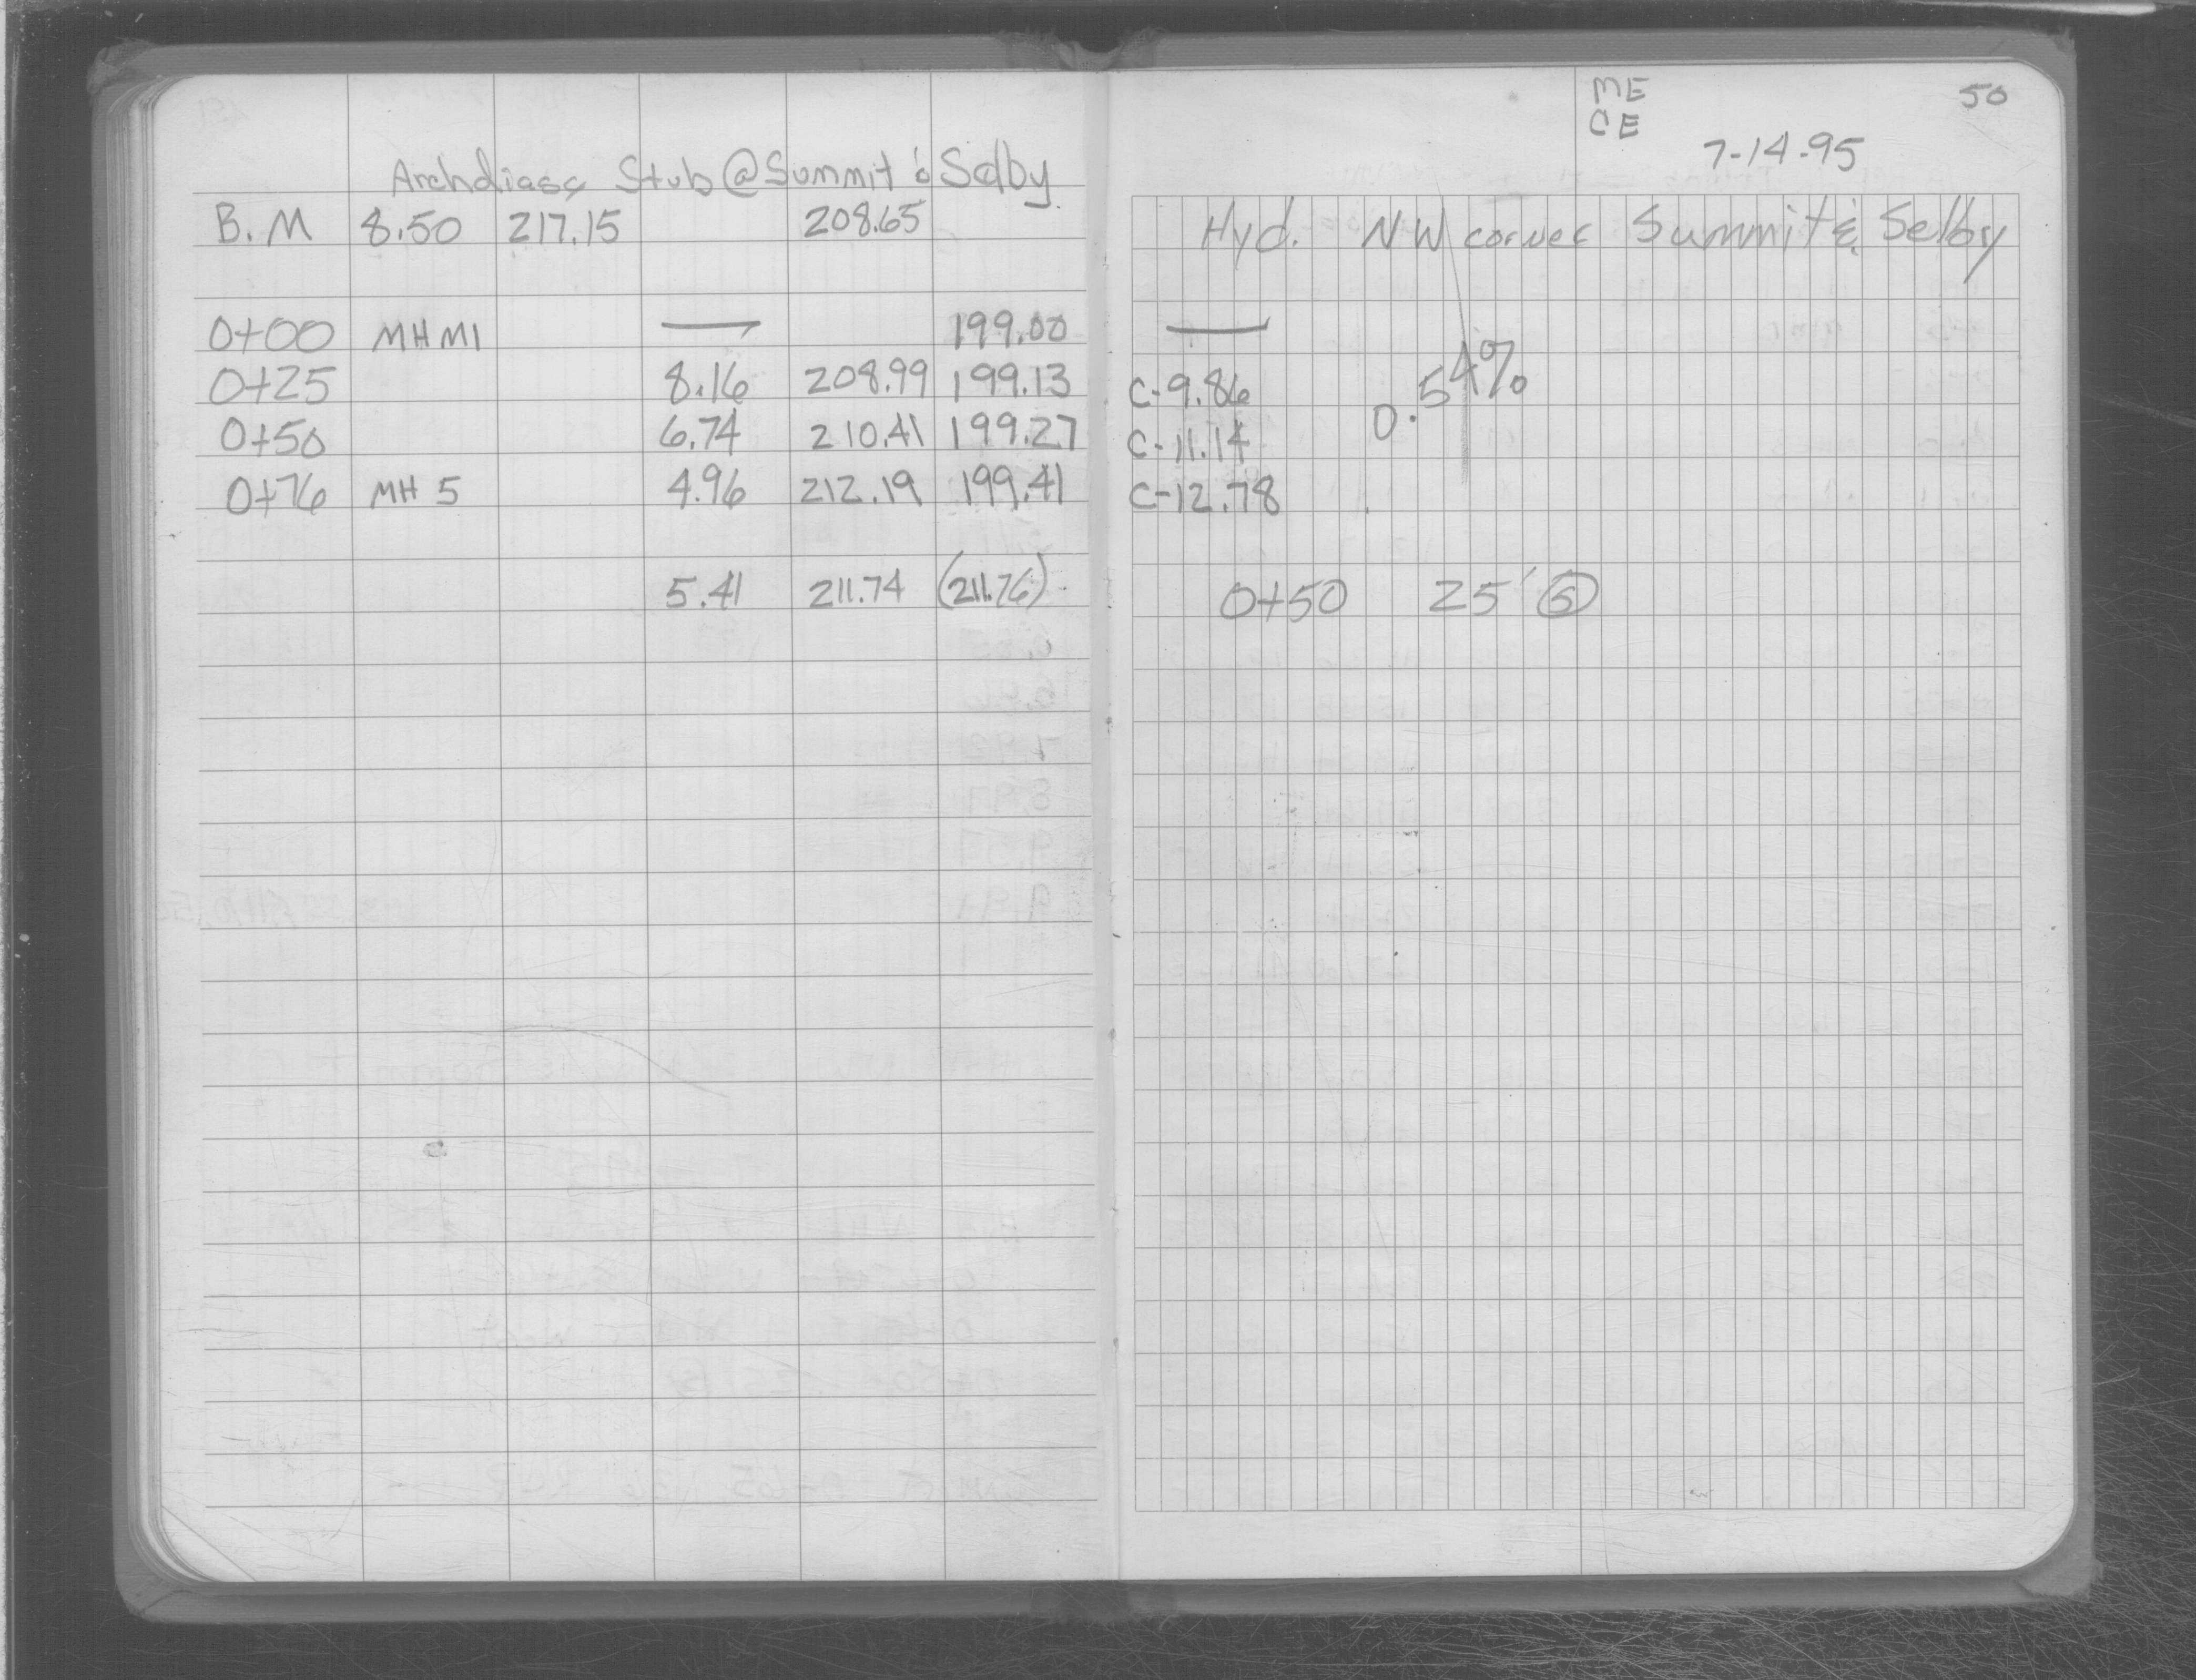 Archdiasc Stub @ Summit & Selby
B.M 8.50 217.15 208.65
0+00 MH M1 — 199.00
0+25 8.16 208.99 199.13
0+50 6.74 210.41 199.27
0+76 MH 5 4.96 212.19 199.41
5.41 211.74 (211.76)
ME
CE
50
7-14-95
Hyd. NW corner Summit & Selby
—
C-9.86
C-11.14
C-12.78
0.54%
0+50 25' S